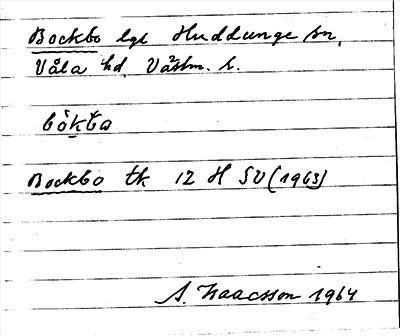 Bockbo lgt Huddunge sn,
Våla hd, Västm. l.
Bockbo tk 12 H SV (1963)
A. Isaacsson 1964